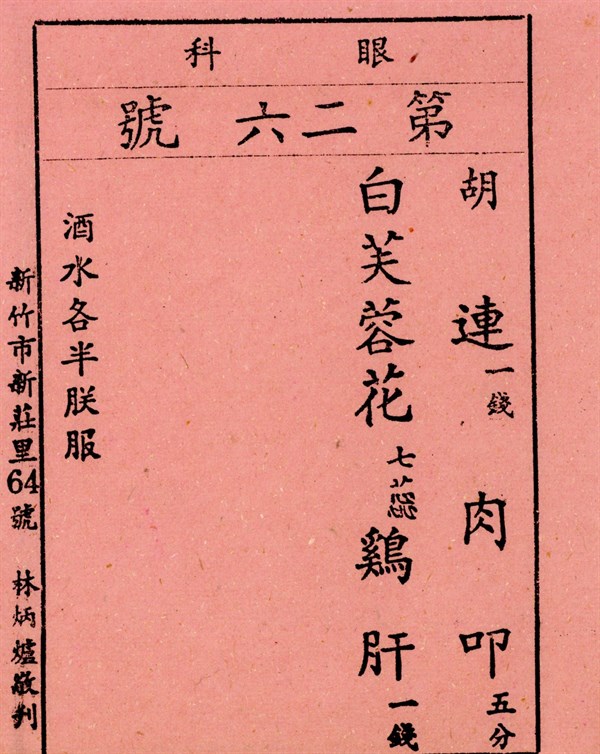 眼科
第二六號
胡連一錢 肉叩五分
白芙蓉花七蕊 鷄肝一錢
酒水各半朕服
新竹市新莊里64號 林炳爐敬刋